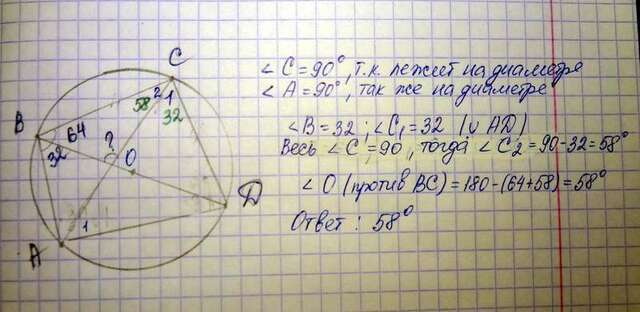 C
2
58
1
32
B
64
32
?
O
D
1
A
∠ C = 90°, т.к. лежит на диаметре
∠ A = 90°, так же на диаметре
∠B = 32 ; ∠C₁ = 32 (∪ AD)
Весь ∠C = 90, тогда ∠C₂ = 90-32 = 58°
∠ O (против BC) = 180 - (64+58) = 58°
Ответ : 58°